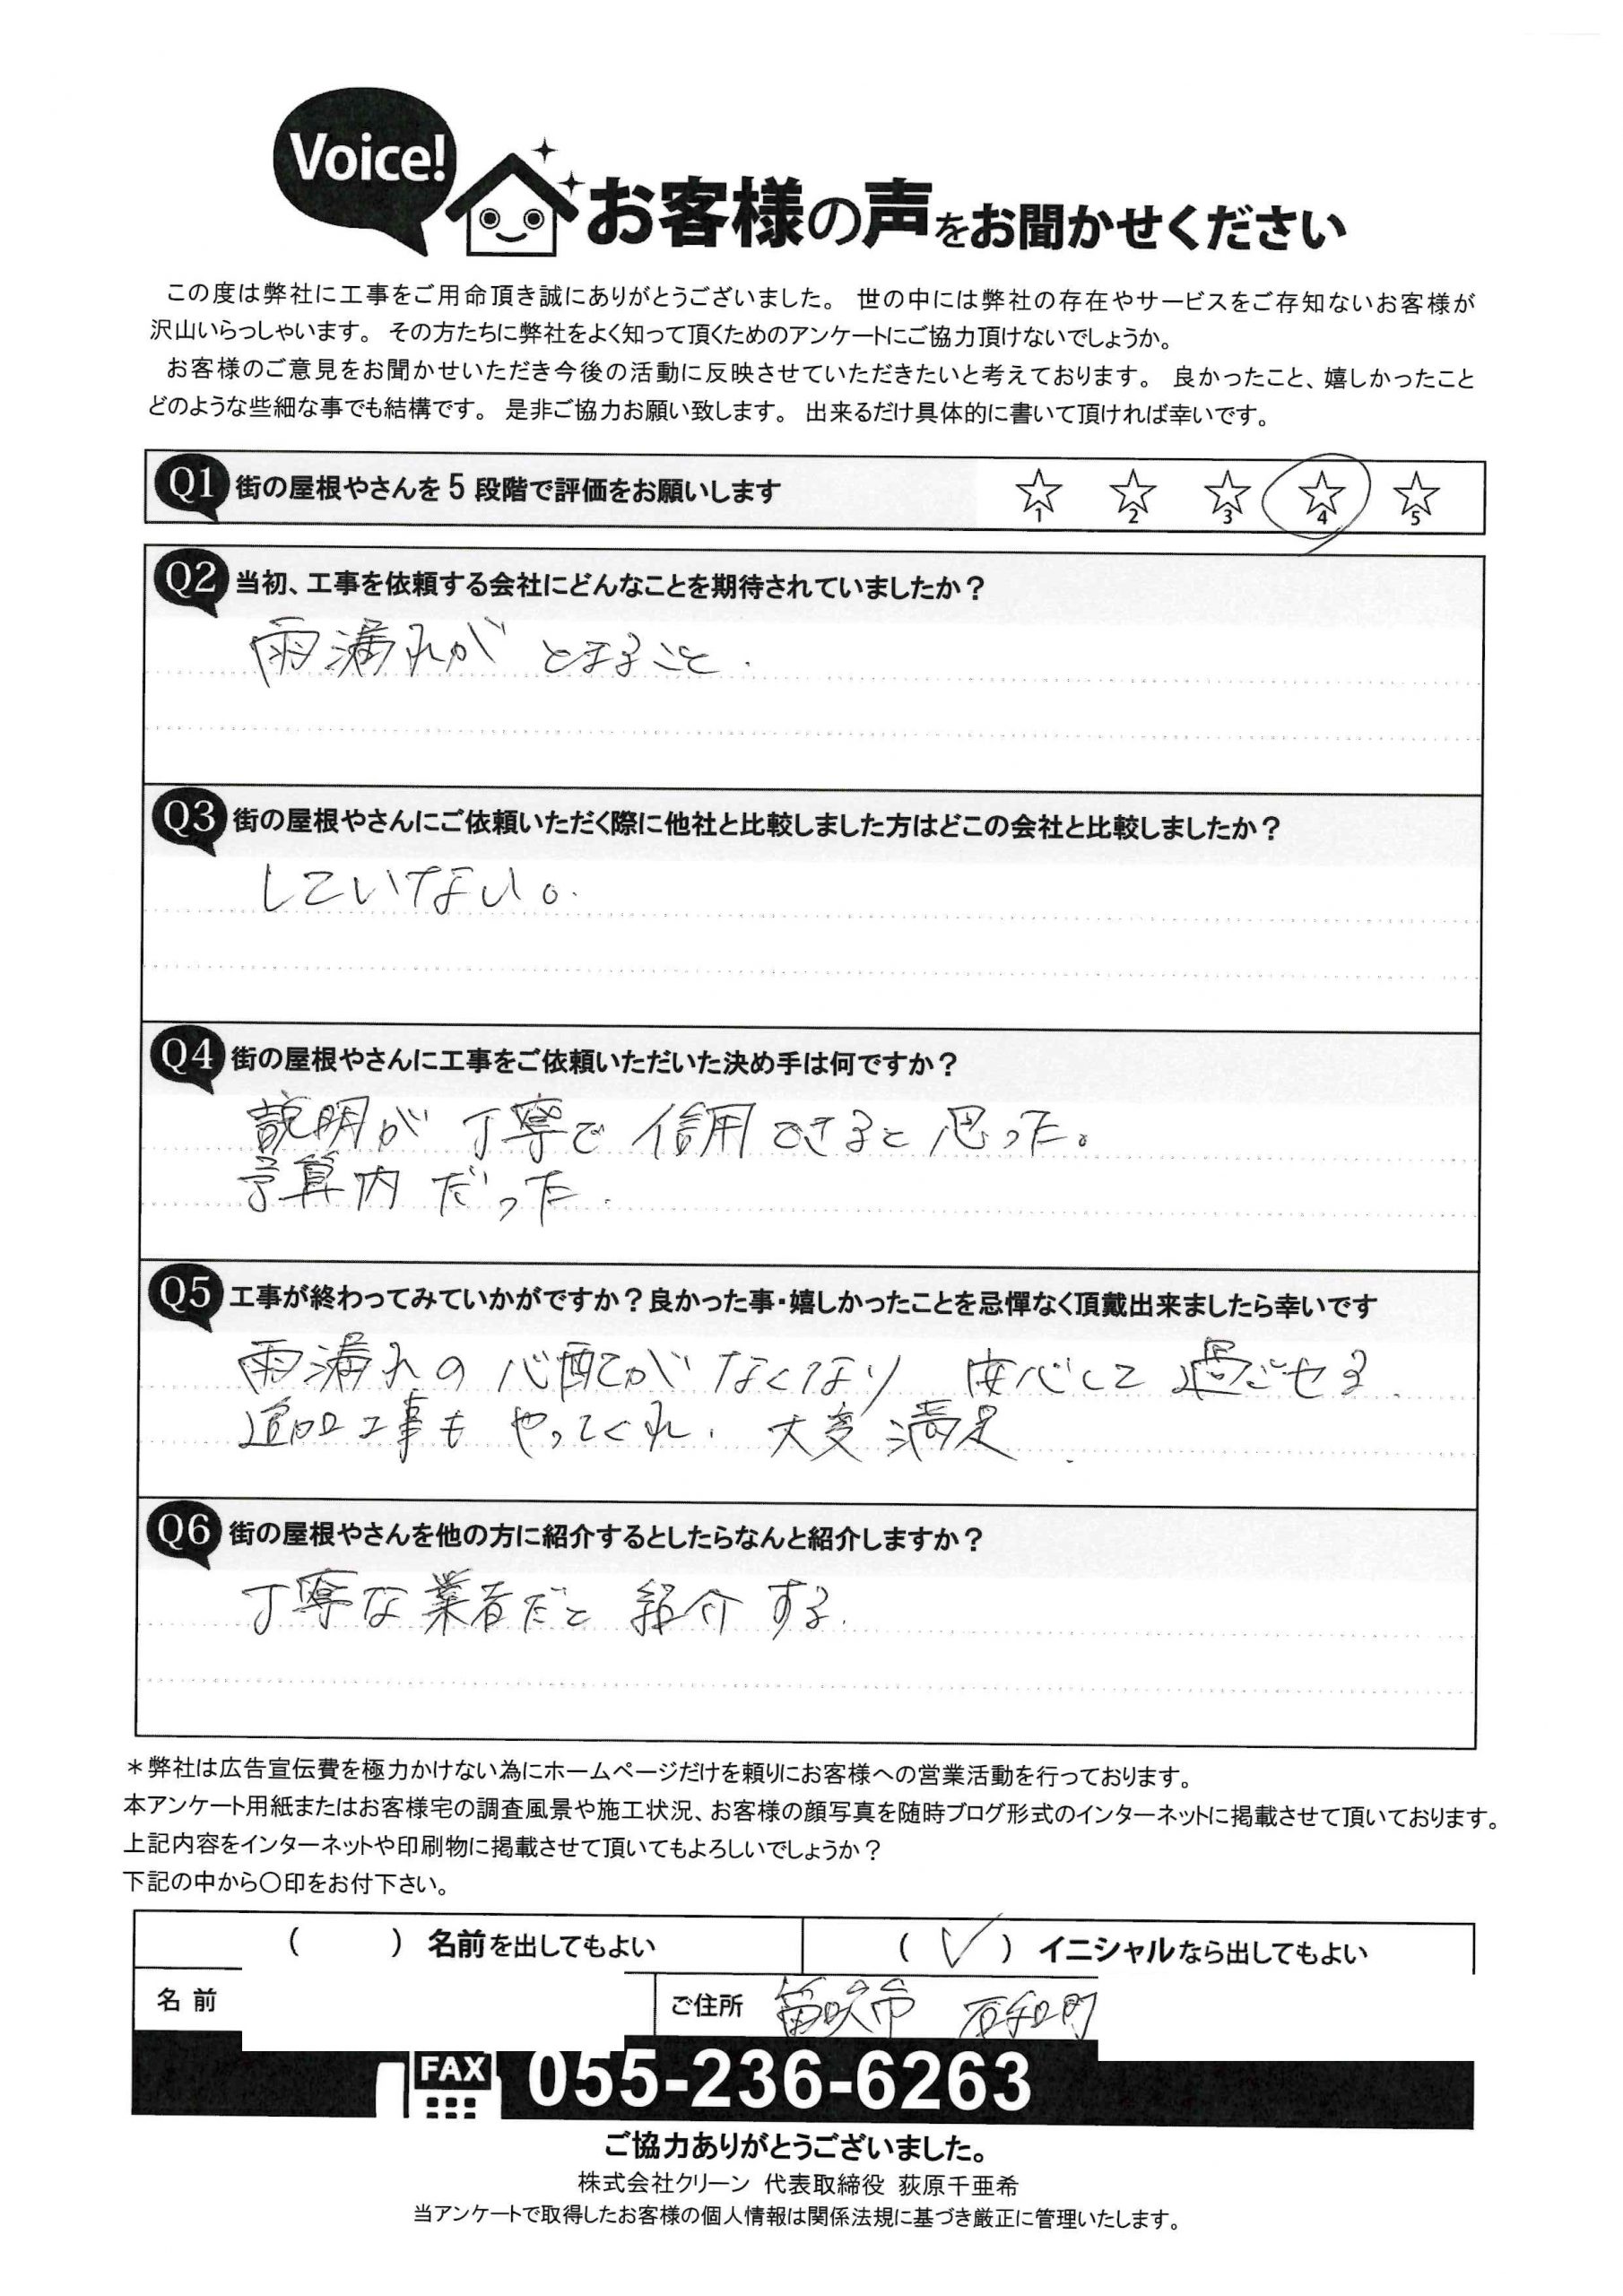 Voice!
お客様の声をお聞かせください
この度は弊社に工事をご用命頂き誠にありがとうございました。 世の中には弊社の存在やサービスをご存知ないお客様が
沢山いらっしゃいます。 その方たちに弊社をよく知って頂くためのアンケートにご協力頂けないでしょうか。
お客様のご意見をお聞かせいただき今後の活動に反映させていただきたいと考えております。 良かったこと、嬉しかったこと
どのような些細な事でも結構です。 是非ご協力お願い致します。 出来るだけ具体的に書いて頂ければ幸いです。
Q1 街の屋根やさんを5段階で評価をお願いします ☆1 ☆2 ☆3 ☆4 ☆5
Q2 当初、工事を依頼する会社にどんなことを期待されていましたか?
雨漏れが とまること.
Q3 街の屋根やさんにご依頼いただく際に他社と比較しました方はどこの会社と比較しましたか?
していない。
Q4 街の屋根やさんに工事をご依頼いただいた決め手は何ですか?
説明が 丁寧で 信用できると 思った。
予算内 だった.
Q5 工事が終わってみていかがですか?良かった事・嬉しかったことを忌憚なく頂戴出来ましたら幸いです
雨漏れの 心配がなくなり 安心して 過ごせる.
追加工事も やってくれ. 大変満足.
Q6 街の屋根やさんを他の方に紹介するとしたらなんと紹介しますか?
丁寧な業者だと 紹介する.
＊弊社は広告宣伝費を極力かけない為にホームページだけを頼りにお客様への営業活動を行っております。
本アンケート用紙またはお客様宅の調査風景や施工状況、お客様の顔写真を随時ブログ形式のインターネットに掲載させて頂いております。
上記内容をインターネットや印刷物に掲載させて頂いてもよろしいでしょうか?
下記の中から〇印をお付下さい。
( ) 名前を出してもよい (✓) イニシャルなら出してもよい
名前 ご住所 笛吹市 石和町
FAX 055-236-6263
ご協力ありがとうございました。
株式会社クリーン 代表取締役 荻原千亜希
当アンケートで取得したお客様の個人情報は関係法規に基づき厳正に管理いたします。